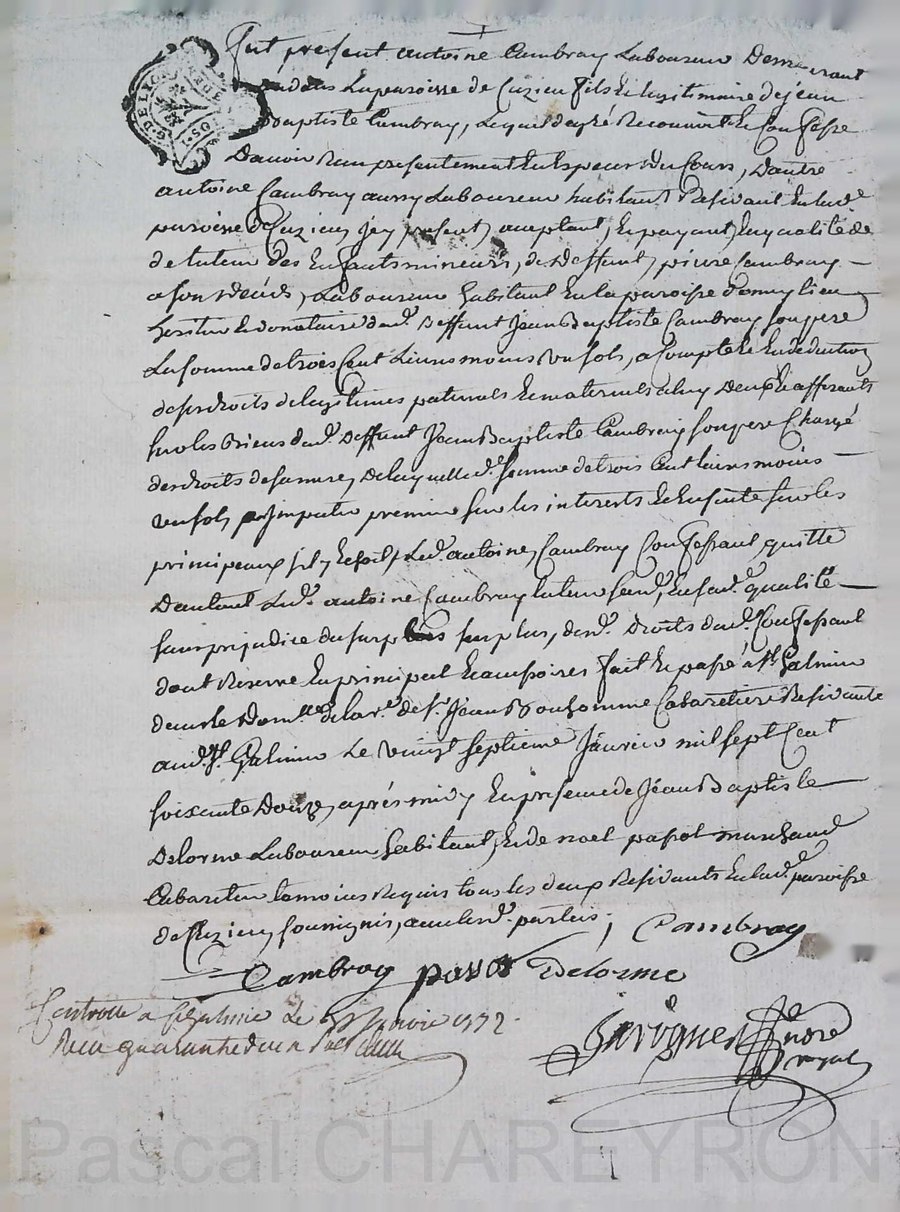 Fut présent antoine Cambray Laboureur Demeurant
dans La paroisse de Cuzieu fils Legitimaire de jean
Baptiste Cambray, Lequel de gré Reconnoit Et Confesse
Davoir Reçu presentement En Especes du Cours, D'autre
antoine Cambray aussy Laboureur habitant Resident En lad.e
paroisse de Cuzieu Icy présent, acceptant, Et payant, En qualité de
de tuteur des Enfants mineurs, de Deffunt pierre Cambray
a son déces, Laboureur habitant En la paroisse
heritier Et donataire dud. Deffunt Jean Baptiste Cambray son pere
La somme de trois Cent Livres moins un sols, a Compte Et En deduction
de ses droits de Legitimes paternels Et maternels a luy Deux Et afferants
sur les Biens dud. Deffunt Jean Baptiste Cambray son pere Chargé
des droits de sa mere, De laquelle d. somme de trois Cent Livres moins
un sols, Imputée premier sur les interets Et Ensuite sur les
principeaux sil y Echoit, Led. antoine Cambray Confessant, quitte
D'autant Led. antoine Cambray tuteur susd., En sad. qualité
sans prejudice du surplus surplus, desd. droits dud. Confessant
dont Reserve En principal Et accessoires fait Et passé a St Galmier
dans le Dom.lle de la v.e de Sr. Jean Bonhomme Cabaretiere Residante
aud. St. Galmier Le vingt septieme Janvier mil sept Cent
soixante Douze, après midy En presence de Jean Baptiste
Delorme Laboureur habitant, Et de noel passot marchand
Cabaretier temoins Requis tous les deux Residants En lad. paroisse
de Cuzieu soussignés, avec lesd. parties;
Cambray
Cambray passot Delorme
Controllé a St galmier Le Janvier 1772.
Recu quarante deux
not.re
royal
Pascal CHAREYRON